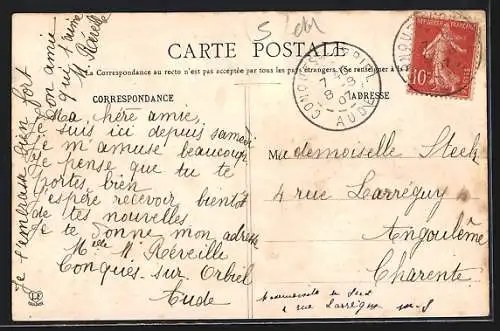 CARTE POSTALE
La Correspondance au recto n'est pas acceptée par tous les pays étrangers. (Se renseigner à la
CORRESPONDANCE
ADRESSE
CONQUES-SUR-ORBIEL
7 - 8
07
AUDE
10
Ma chère amie,
Je suis ici depuis samedi
Je m'amuse beaucoup
Je pense que tu te
portes bien
J'espère recevoir bientôt
de tes nouvelles
Je te donne mon adresse
Melle M. Réveille
Conques-sur-Orbiel
Aude
Je t'embrasse bien fort
Ton amie
qui t'aime
M. Réveille
Mademoiselle Steck
4 rue Larréguy
Angoulême
Charente
4 rue Larréguy